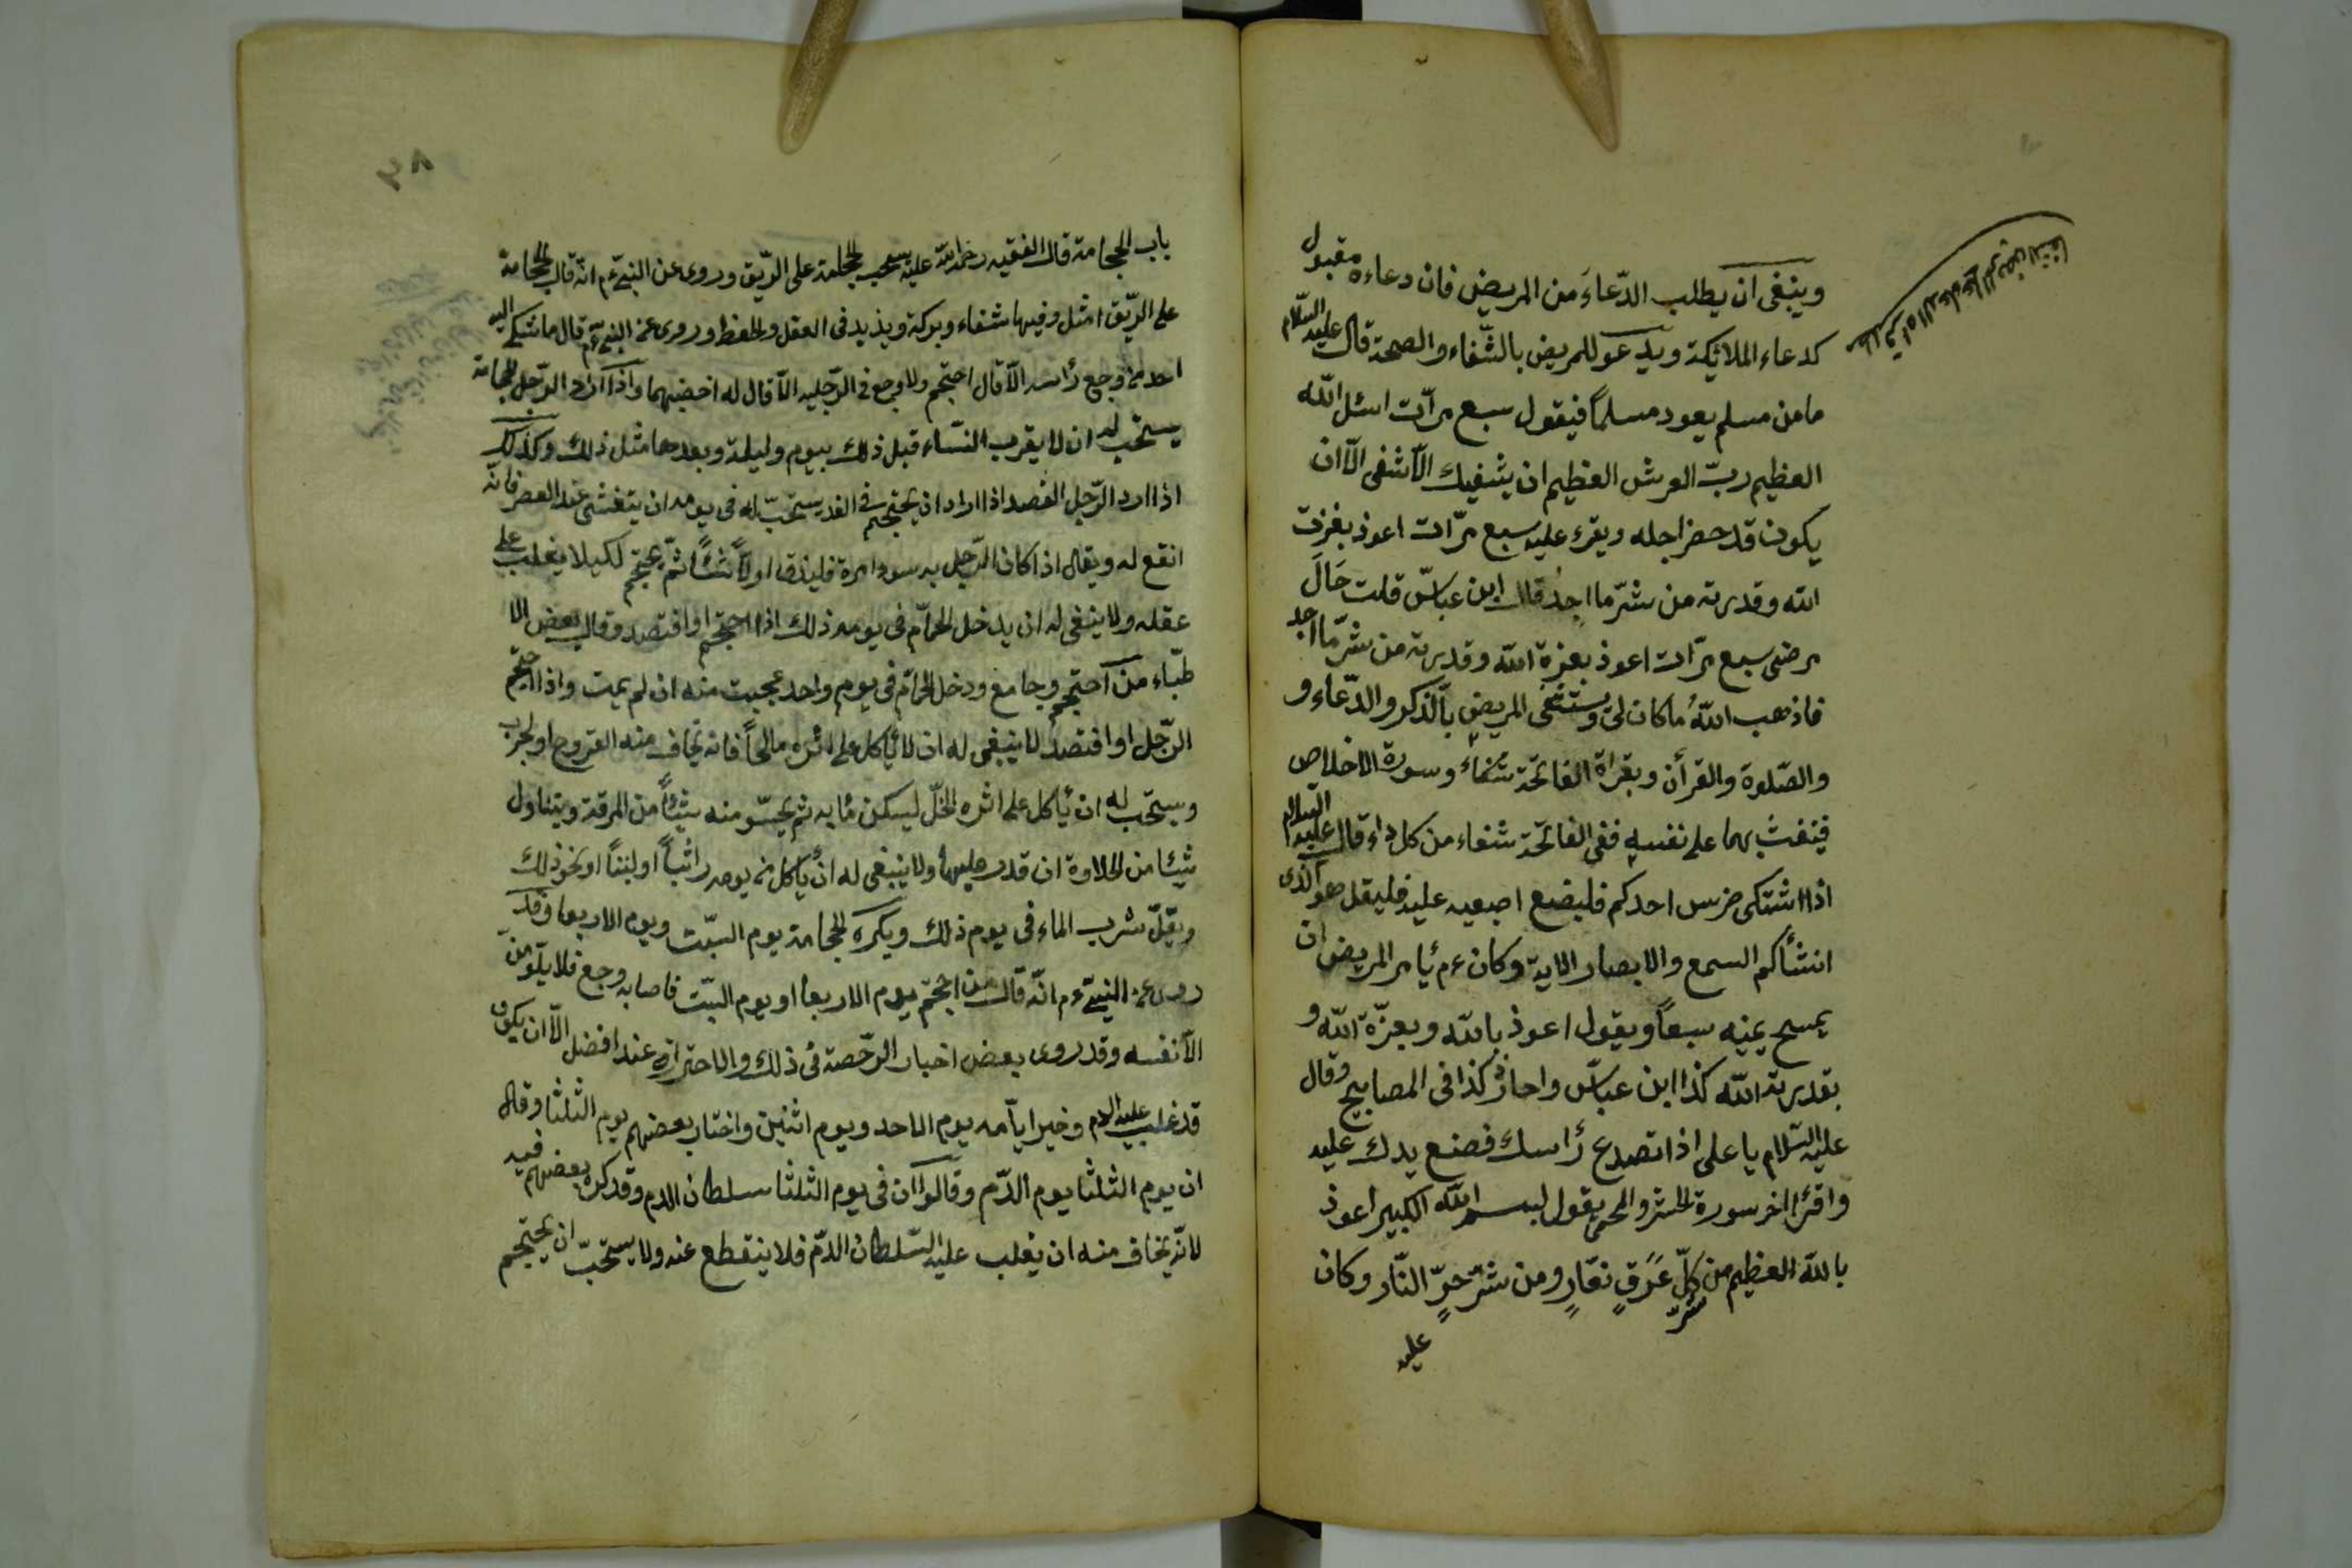 وينبغى ان يطلب الدّعاءَ من المريض فان دعاءه مقبول
كدعاء الملائكة ويدعو للمريض بالشّفاء والصحة قال عليه السّلام
ما من مسلم يعود مسلماً فيقول سبع مرّات اسئل اللّه
العظيم ربّ العرش العظيم ان يشفيك الّا شفى الّا ان
يكون قد حضر اجله ويقرء عليه سبع مرّات اعوذ بغزت
اللّه وقدرته من شرّ ما اجدُ قال ابن عباسّ قلت حَالَ
مرضى سبع مرّات اعوذ بعزة اللّه وقدرته من شرّ ما اجد
فاذهب اللّهُ ما كان لى ويستشفى المريض بالذكر والدّعاء و
والصّلوة والقرأن وبقراة الفاتحة شفاء وسورة الاخلاص
فينفث بهما على نفسه ففى الفاتحة شفاء من كل داء قال عليه السلام
اذا اشتكى ضرس احدكم فليضع اصبعيه عليه فليقل هو الّذى
انشأكم السمع والابصار الاية وكان ءم يأمر المريض ان
يمسح يمنيه سبعاً ويقول اعوذ باللّه وبعزّة اللّه و
بقدرته اللّه كذا ابن عباسّ واحاذر كذا فى المصابيح وقال
عليه السّلام يا على اذا تصدع رأسك فضع يدك عليه
واقرأ اخر سورة الحشر والحمى يقول لبسم اللّه الكبير اعوذ
باللّه العظيم من شرّ كلّ عَرَقٍ نعّارٍ ومن شرّ حرٍّ النّار وكان
عليه
باب الحجامة قال الفقيه رحمة اللّه عليه يستحب الحجامة على الرّيق وروى عن النبىّ ءم انّه قال الحجامة
على الرّيق امثل وفيها شفاء وبركة ويذيد فى العقل والحفظ وروى عن النبىّ ءم قال ما شيكى اليه
احد من وجع رأسه الّا قال احتجم ولا وجع فى الرّجليه الّا قال له اخضبهما واذا اراد الرّجل الحجامة
يستحب له ان لا يقرب النسّاء قبل ذلك بيوم وليلة وبعدها مثل ذلك وكذلك
اذا ارد الرّجل الفصد اذا اراد ان يحتجم فى الغد يستحبّ له فى يومه ان يتعشى عند العصر فانّه
انفع له ويقال اذا كان الرّجل به سودا مرة فليذق اولاً شئًا ثمّ يحتجم لكيلا يغلب على
عقله ولا ينبغى له ان يدخل الحمّام فى يومه ذلك اذا احتجم او افتصد وقال بعض الا
طبّاء من احتجم وجامع ودخل الحمّام فى يوم واحد عجبت منه ان لم يمت واذا احتجم
الرّجل او افتصد لا ينبغى له ان لا يأكل على اثره مالحاً فانه يخاف منه القروح او الجرب
ويستحب له ان يأكل على اثره الخلّ ليسكن مابه ثم يحسّو منه شيئاً من المرقة ويتناول
شيئا من الحلاوة ان قدر عليها ولا ينبغى له ان يأكل فى يومه رائباً او لبنًا او نحو ذلك
ويقلّ شرب الماء فى يوم ذلك ويكره الحجامة يوم السبّت ويوم الاربعا وقد
روى عن النبىّ ءم انّه قال من احتجم يوم الاربعا او يوم السبّت فاصابه وجع فلا يلومن
الّا نفسه وقد روى بعض اخبار الرّخصة فى ذلك والاحتراز عنه افضل الّا ان يكون
قد غلب عليه الدم وخير ايّامه يوم الاحد ويوم اثنين واختار بعضهم يوم الثلثا وقال
ان يوم الثلثا يوم الدّم وقالوا ان فى يوم الثلثا سلطان الدم وقد كره بعضهم فيه
لانّه يخاف منه ان يغلب عليه السّلطان الدّم فلا ينقطع عنه ولا يستحبّ ان يحتجم